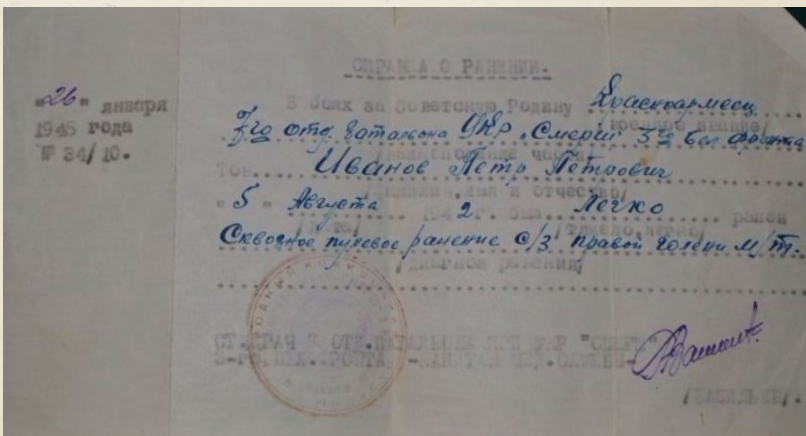 СПРАВКА О РАНЕНИИ.
"26" января
1945 года
№ 34/10.
В боях за Советскую Родину Красноармеец
/воинское звание/
7го отд. батальона УКР "Смерш" 3го Бел. фронта
/наименование части/
Тов. Иванов Петр Петрович
/фамилия, имя и отчество/
"5" Августа 194 2. г. был Легко ранен
/дата/ /тяжело, легко/
Сквозное пулевое ранение с/3 правой голени м/т.
/диагноз ранения/
СТ. ВРАЧ 7 ОТД. БАТАЛЬОНА ПРИ УКР "СМЕРШ"
3-ГО БЕЛ. ФРОНТА -КАПИТАН МЕД. СЛУЖБЫ-
/ВАСИЛЬЕВ/.